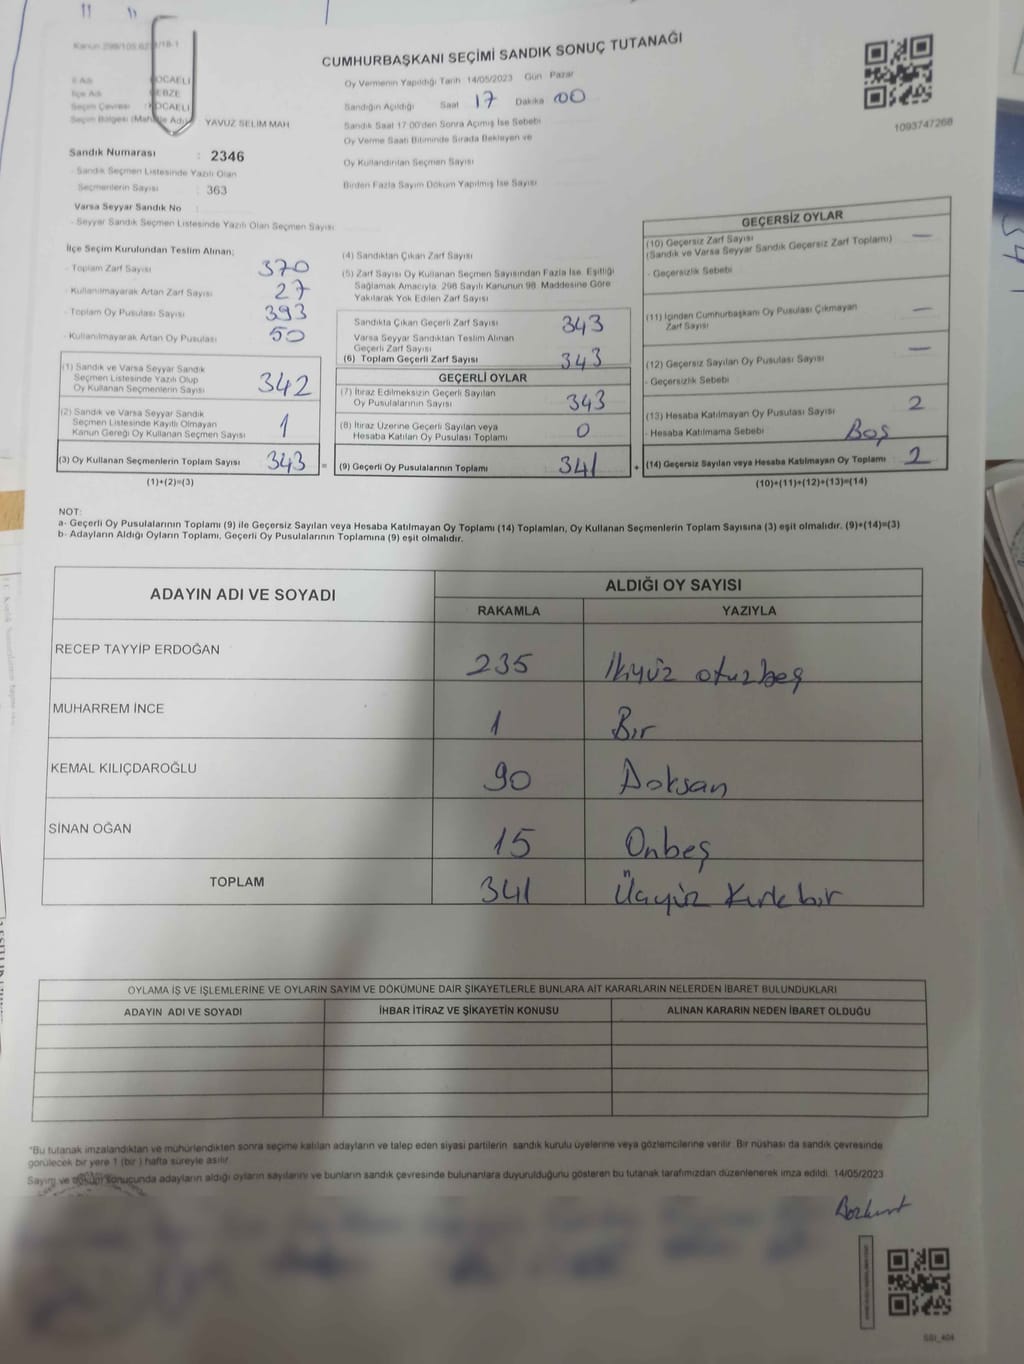 CUMHURBAŞKANI SEÇİMİ SANDIK SONUÇ TUTANAĞI
İl Adı : OCAELİ
İlçe Adı EBZE
Seçim Çevresi : OCAELİ
YAVUZ SELİM MAH
Oy Vermenin Yapıldığı Tarih 14/05/2023 Gün Pazar
Sandığın Açıldığı Saat 17 Dakika 00
Sandık Saat 17.00'den Sonra Açılmış İse Sebebi
Oy Verme Saati Bitiminde Sırada Bekleyen ve
Oy Kullandırılan Seçmen Sayısı
Birden Fazla Sayım Döküm Yapılmış İse Sayısı
1093747268
Sandık Numarası : 2346
- Sandık Seçmen Listesinde Yazılı Olan
Seçmenlerin Sayısı : 363
Varsa Seyyar Sandık No
- Seyyar Sandık Seçmen Listesinde Yazılı Olan Seçmen Sayısı
İlçe Seçim Kurulundan Teslim Alınan;
- Toplam Zarf Sayısı 370
- Kullanılmayarak Artan Zarf Sayısı 27
- Toplam Oy Pusulası Sayısı 393
- Kullanılmayarak Artan Oy Pusulası 50
(1) Sandık ve Varsa Seyyar Sandık
Seçmen Listesinde Yazılı Olup
Oy Kullanan Seçmenlerin Sayısı 342
(2) Sandık ve Varsa Seyyar Sandık
Seçmen Listesinde Kayıtlı Olmayan
Kanun Gereği Oy Kullanan Seçmen Sayısı 1
(3) Oy Kullanan Seçmenlerin Toplam Sayısı 343 =
(1)+(2)=(3)
(4) Sandıktan Çıkan Zarf Sayısı
(5) Zarf Sayısı Oy Kullanan Seçmen Sayısından Fazla İse, Eşitliği
Sağlamak Amacıyla, 298 Sayılı Kanunun 98. Maddesine Göre
Yakılarak Yok Edilen Zarf Sayısı
Sandıkta Çıkan Geçerli Zarf Sayısı 343
Varsa Seyyar Sandıktan Teslim Alınan
Geçerli Zarf Sayısı
(6) Toplam Geçerli Zarf Sayısı 343
GEÇERLİ OYLAR
(7) İtiraz Edilmeksizin Geçerli Sayılan
Oy Pusulalarının Sayısı 343
(8) İtiraz Üzerine Geçerli Sayılan veya
Hesaba Katılan Oy Pusulası Toplamı 0
(9) Geçerli Oy Pusulalarının Toplamı 341 +
GEÇERSİZ OYLAR
(10) Geçersiz Zarf Sayısı —
(Sandık ve Varsa Seyyar Sandık Geçersiz Zarf Toplamı)
- Geçersizlik Sebebi
(11) İçinden Cumhurbaşkanı Oy Pusulası Çıkmayan —
Zarf Sayısı
(12) Geçersiz Sayılan Oy Pusulası Sayısı —
- Geçersizlik Sebebi
(13) Hesaba Katılmayan Oy Pusulası Sayısı 2
- Hesaba Katılmama Sebebi Boş
(14) Geçersiz Sayılan veya Hesaba Katılmayan Oy Toplamı 2
(10)+(11)+(12)+(13)=(14)
NOT:
a- Geçerli Oy Pusulalarının Toplamı (9) ile Geçersiz Sayılan veya Hesaba Katılmayan Oy Toplamı (14) Toplamları, Oy Kullanan Seçmenlerin Toplam Sayısına (3) eşit olmalıdır. (9)+(14)=(3)
b- Adayların Aldığı Oyların Toplamı, Geçerli Oy Pusulalarının Toplamına (9) eşit olmalıdır.
ADAYIN ADI VE SOYADI ALDIĞI OY SAYISI
RAKAMLA YAZIYLA
RECEP TAYYİP ERDOĞAN 235 İkiyüz otuzbeş
MUHARREM İNCE 1 Bir
KEMAL KILIÇDAROĞLU 90 Doksan
SİNAN OĞAN 15 Onbeş
TOPLAM 341 Üçyüz Kırkbir
OYLAMA İŞ VE İŞLEMLERİNE VE OYLARIN SAYIM VE DÖKÜMÜNE DAİR ŞİKAYETLERLE BUNLARA AİT KARARLARIN NELERDEN İBARET BULUNDUKLARI
ADAYIN ADI VE SOYADI İHBAR İTİRAZ VE ŞİKAYETİN KONUSU ALINAN KARARIN NEDEN İBARET OLDUĞU
"Bu tutanak imzalandıktan ve mühürlendikten sonra seçime katılan adayların ve talep eden siyasi partilerin sandık kurulu üyelerine veya gözlemcilerine verilir. Bir nüshası da sandık çevresinde
görülecek bir yere 1 (bir) hafta süreyle asılır.
Sayım ve döküm sonucunda adayların aldığı oyların sayılarını ve bunların sandık çevresinde bulunanlara duyurulduğunu gösteren bu tutanak tarafımızdan düzenlenerek imza edildi. 14/05/2023
Bozkurt